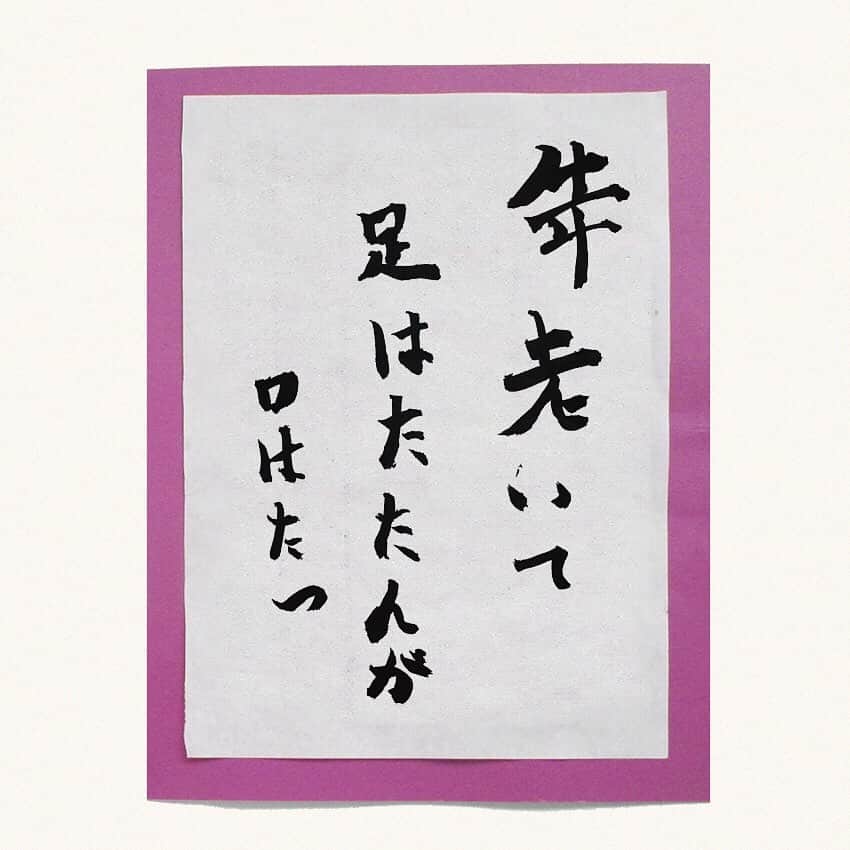 年老いて
足はたたんが
口はたつ